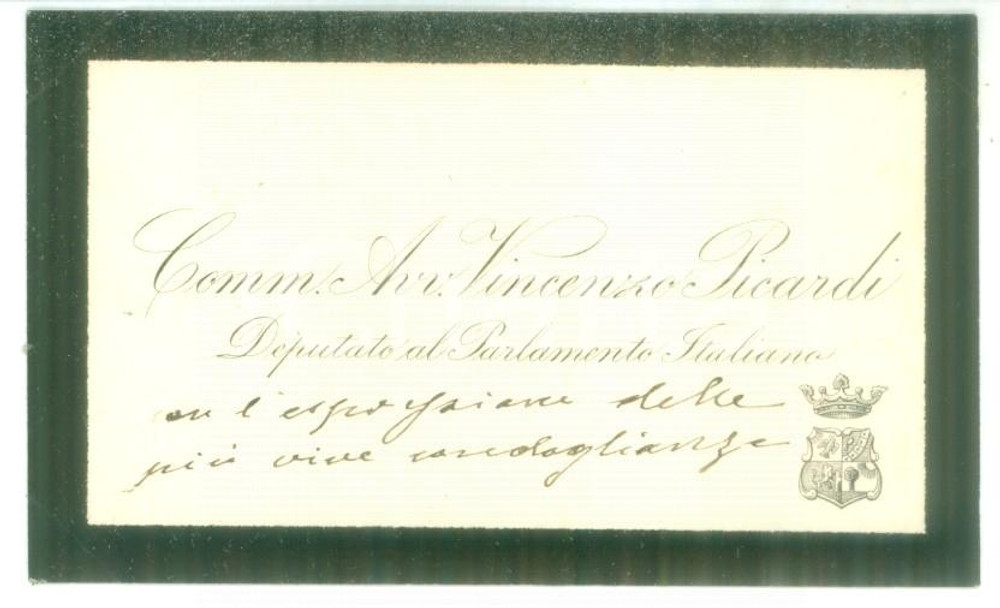 Comm. Avv. Vincenzo Picardi
Deputato al Parlamento Italiano
con l'espressione delle
più vive condoglianze